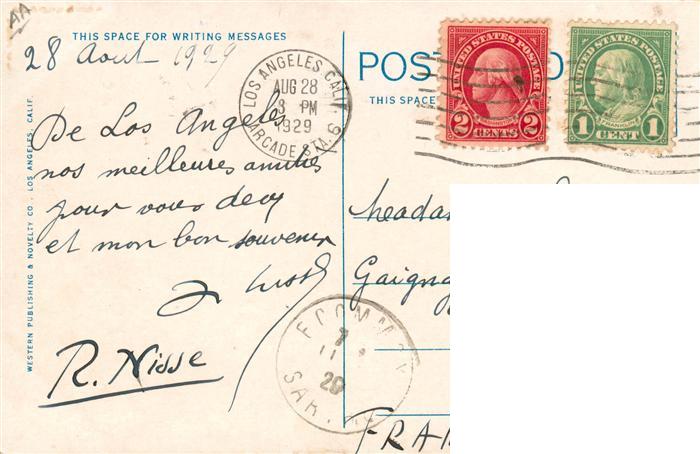 AA
THIS SPACE FOR WRITING MESSAGES
28 Aout 1929
De Los Angeles
nos meilleures amitiés
pour vous deux
et mon bon souvenir
R. Nisse
WESTERN PUBLISHING & NOVELTY CO., LOS ANGELES, CALIF.
LOS ANGELES CALIF.
AUG 28
3 PM
1929
ARCADE STA. 6
POST
THIS SPACE
UNITED STATES POSTAGE
WASHINGTON
2 CENTS 2
UNITED STATES POSTAGE
FRANKLIN
1 CENT 1
Madam
Gaigna
ECOMMOY
7
11
29
SAR
FRA